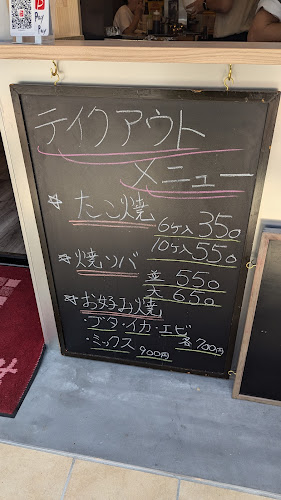 Pay
Pay
テイクアウト
メニュー
☆たこ焼 6ケ入 350
10ケ入 550
☆焼ソバ 並 550
大 650
☆お好み焼
・ブタ・イカ・エビ 各700円
・ミックス 900円